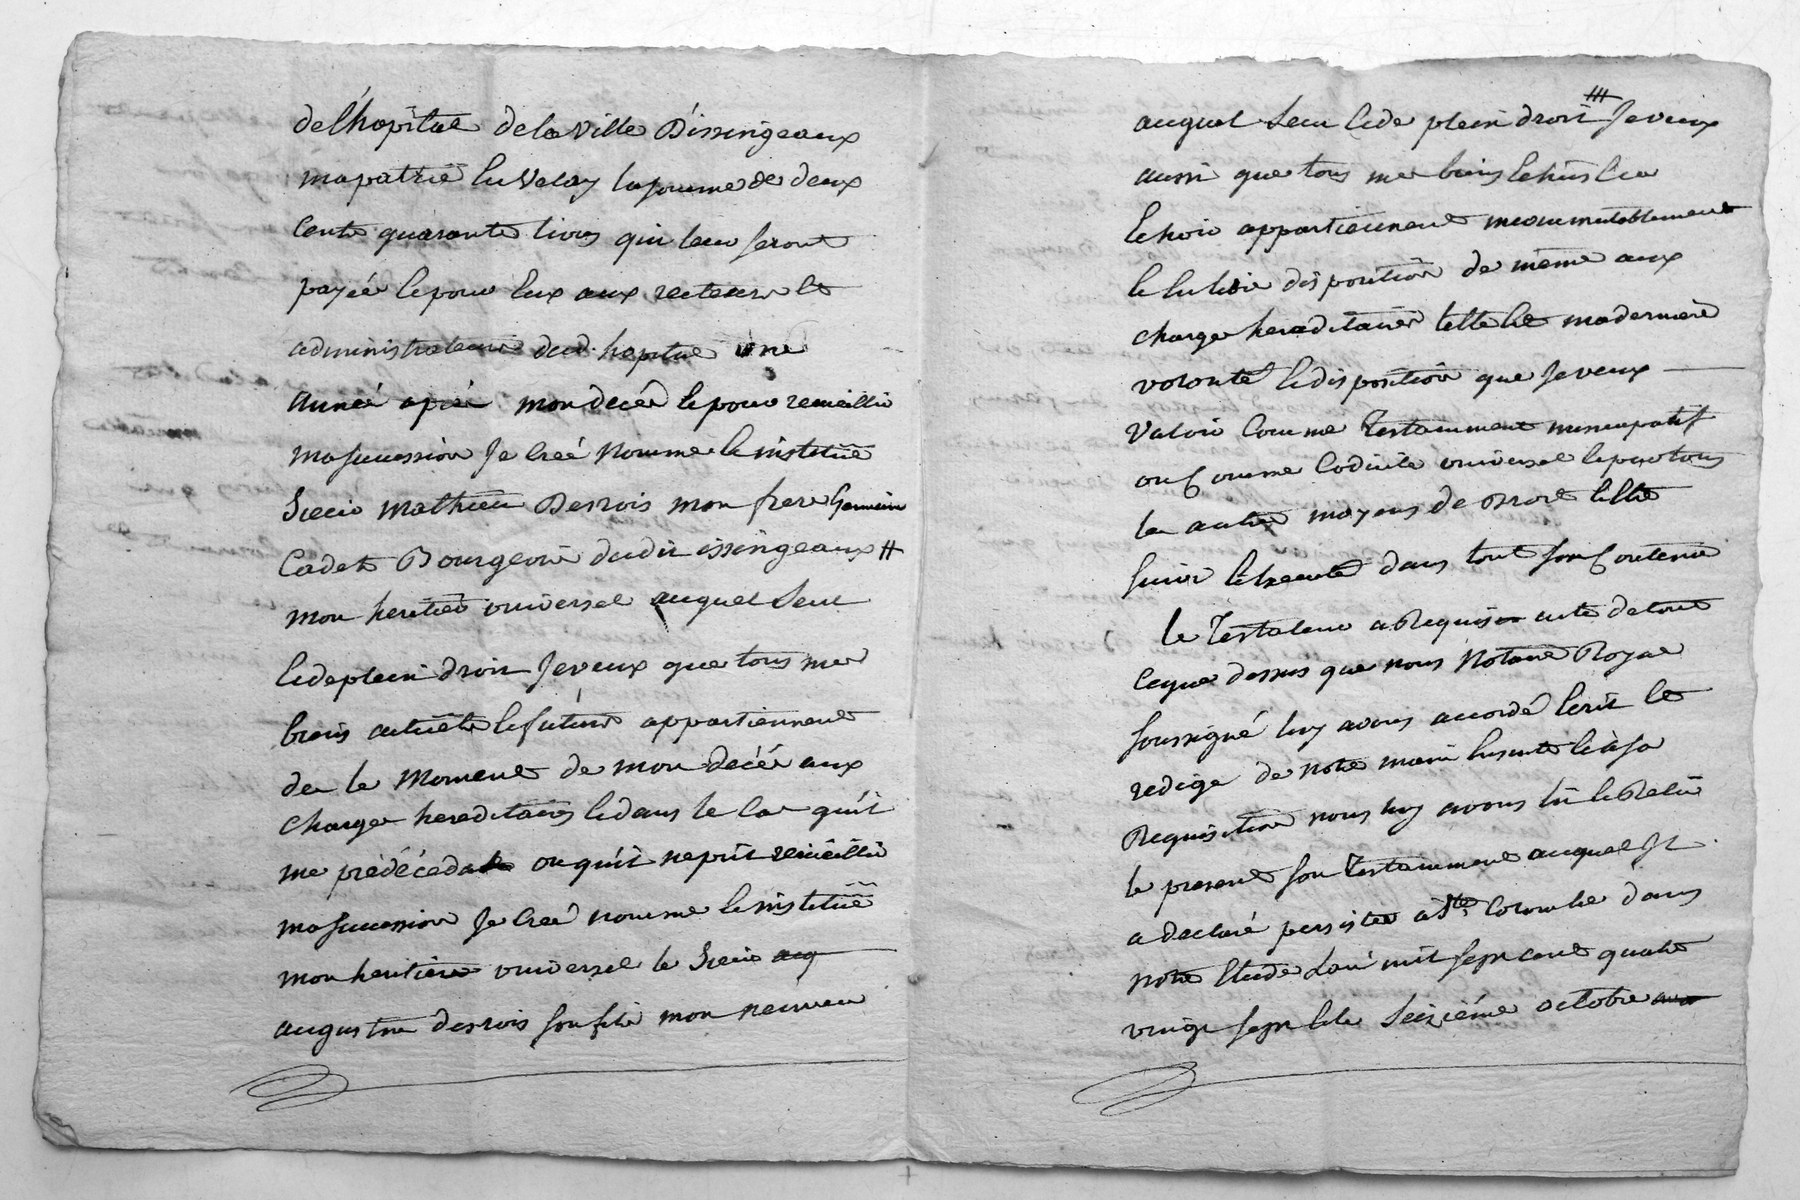 de l'hopital de la ville D'issingeaux
ma patrie en Velay la somme de deux
cents quarante livres qui leur seront
payée et pour eux aux recteurs et
administrateurs dud. hopital une
année apres mon decéd et pour recueillir
ma succession Je creé Nomme et institüe
Sieur Mathieu Desrois mon frere Germain
Cadet Bourgeois dudit issingeaux #
mon heritier universel auquel seul
et de plein droit Je veux que tous mes
biens actuels et futurs appartiennent
des le Moment de mon decéd aux
charges hereditaires et dans le cas qu'il
me prédécéda ou qu'il ne put recueillir
ma succession Je creé nomme et institüe
mon heritier universel le Sieur
augustin desrois son fils mon neuveu
auquel seul et de plein droit Je veux
aussi que tous mes biens echus et a
Echoir appartiennent incommutablement
et en libre disposition de même aux
charges hereditaires telle est ma derniere
volonté et disposition que Je veux
Valoir Comme Testamment nuncupatif
ou Comme Codicile universel et par tous
les autres moyens de Droit et etre
suivi et executé dans tout son Contenu
le Testateur a Requis acte de tout
ce que dessus que nous Notaire Royal
soussigné luy avons accordé Ecrit et
redigé de notre main ensuite et à sa
Requisition nous luy avons lû et Relû
le present son testamment auquel Il
a declaré persister a Ste Colombe dans
notre Etude L'an mil sept cent quatre
vingt sept et le seiziéme octobre